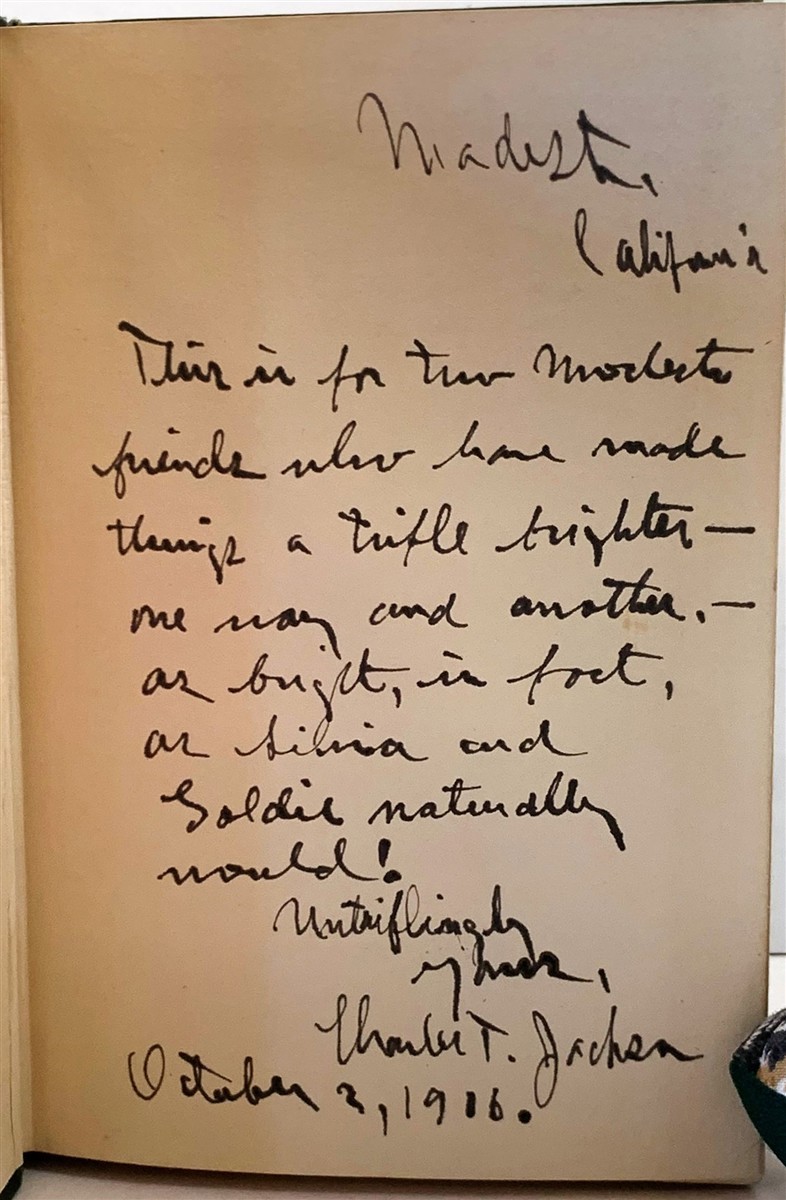 Modesto,
California
This is for two Modesto
friends who have made
things a trifle brighter —
one way and another. —
as bright, in fact,
as Silvia and
Goldie naturally
would!
Untriflingly
yours,
Charles T. Jackson
October 2, 1916.